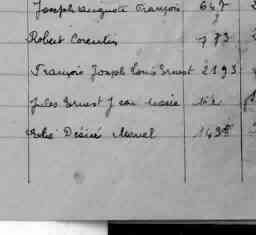 Joseph Auguste François 647
Robert Corentin 783
François Joseph Louis Ernest 2193
Jules Ernest Jean Marie
Désiré 1438